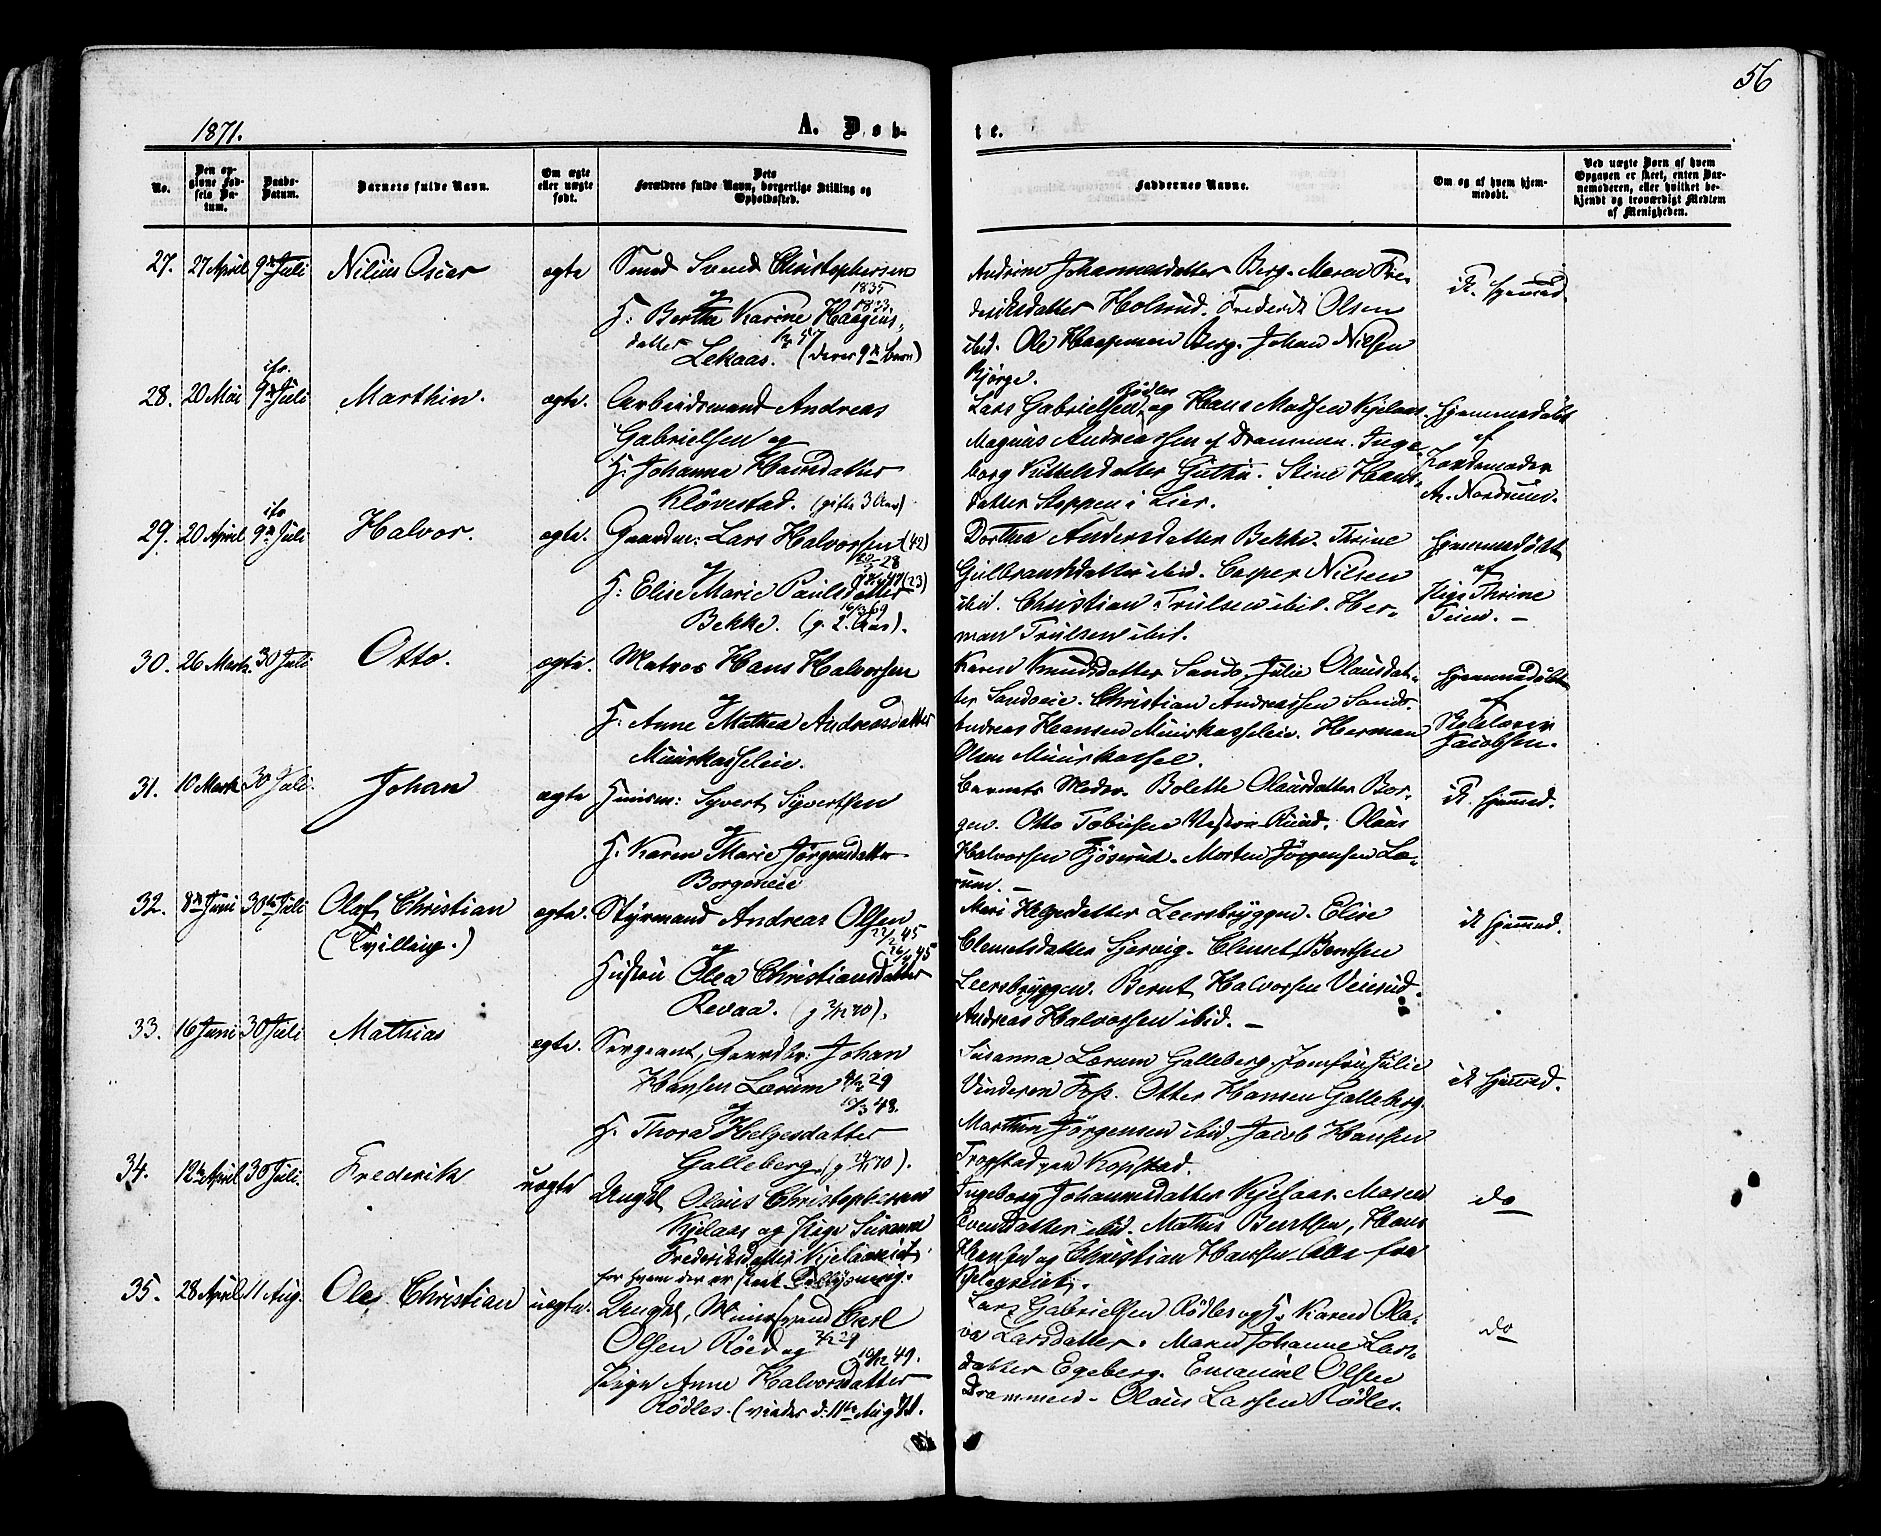 56
1871.
A. Døb-
te.
No.
Den op-
givne Fød-
sels Da-
tum.
Daabs-
Datum.
Barnets fulde Navn.
Om ægte
eller uægte
født.
Dets
Forældres fulde Navn, borgerlige Stilling og
Opholdssted.
Faddernes Navne.
Om og af hvem hjem-
medøbt.
Ved uægte Børn af hvem
Opgaven er skeet, enten Bar-
nemoderen, eller hvilket be-
kjendt og troværdigt Medlem
af Menigheden.
27. 27 April 9de Juli Nilius Oscar ægte Smed Svend Christophersen
1835
og 1833
H: Bertha Karine Haagens-
datter
Lekaas. (deres 9de barn)
Andrine Johannesdatter Berg. Maren Fre-
deriksdatter Holsrud. Frederik Olsen
ibid. Ole Haagensen Berg. Johan Nilsen
Bjørge.
ik. hjemmed.
28. 20 Mai 9de Juli Marthin. ægte. Arbeidsmand Andreas
Gabrielsen og
H. Johanna Hansdatter
Kløvestad. (gifte 3 Aar)
Lars Gabrielsen Rødles og Hans Madsen Kjelaas.
Magnus Andreassen af Drammen. Inge-
borg Kittelsdatter Guthu. Stine Hans-
datter Stoppen i Lier.
hjemmedøbt
af
Jordemoder
A. Nordrum.
29. 20 April 9de Juli Halvor. ægte. Gaardm: Lars Halvorsen (42)
28
og 47 (23)
H: Elise Marie Paulsdatter
16/3 69
Bekke. (g. 2 Aar).
Dorthea Andersdatter Bekke. Thrine
Gulbrandsdatter ibid. Casper Nilsen
ibid. Christian Trulsen ibid. Her-
man Trulsen ibid.
hjemmedøbt
af
Pige Thrine
Tuen. –
30. 26 Marts 30 Juli Otto. ægte. Matros Hans Halvorsen
og
H: Anne Mathea Andreasdatter
Muurkasseleie.
Karen Knudsdatter Sando. Julie Olausdat-
ter Sandoeie. Christian Andreassen Sando.
Andreas Hansen Muurkasseleie. Herman
Olsen Muurkassel.
hjemmedøbt
af
Skolelærer
Jacobsen.
31. 10 Marts 30 Juli. Johan ægte Huusm: Syvert Syvertsen
og
H. Karen Marie Jørgensdatter
Borgeneie
Barnets Moder. Bolette Olausdatter Bor-
gen. Otto Tobiesen Vestre Rund. Olaus
Halvorsen Fjøserud. Morten Jørgensen Læ-
rum. –
ik. hjemmed.
32. 8de Juni 30te Juli Olaf Christian
(Tvilling.)
ægte. Styrmand Andreas Olsen
45
og 45
Hustru Olea Christiansdatter
Revaa. (g 70).
Mari Helgesdatter Leersbryggen. Elise
Clemetsdatter Sjervig. Clemet Bentsen
Leersbryggen. Bernt Halvorsen Veierud.
Andreas Halvorsen ibid. –
ik hjemmed.
33. 16 Juni 30 Juli Mathias ægte. Sergeant, Gaardbr: Johan
Hansen Lærum 29
og 10/3 48.
H. Thora Helgesdatter
Galleberg. (g 70).
Susanna Lærum Galleberg. Jomfru Julie
Vinderen Foss. Otter Hansen Galleberg.
Marthin Jørgensen ibid. Jacob Hansen
Kopstad.
ik hjemmed.
34. 12te April 30 Juli. Frederik uægte Ungk. Olaus Christophersen
Kjelaas og Pige Susanne
Frederiksdatter Kjelaaseiet,
for hvem der er skeet Troliysning.
Ingeborg Johannesdatter Kjelaas. Maren
Evensdatter ibid. Mathis Berntsen, Hans
Hansen og Christian Hansen Alle fra
Kjelaaseiet.
do
35. 28 April 11 Aug. Ole Christian uægte. Ungk, Carl
Olsen Røed og 29
10/12 49.
Pige Anne Halvorsdatter
Rødles. (viedes d. 11te Aug 71.
Lars Gabrielsen Rødles og H. Karen Ola-
va Larsdatter. Maren Johanne Lars-
datter Egeberg. Emanuel Olsen
Drammen. Olaus Larsen Rødles.
do